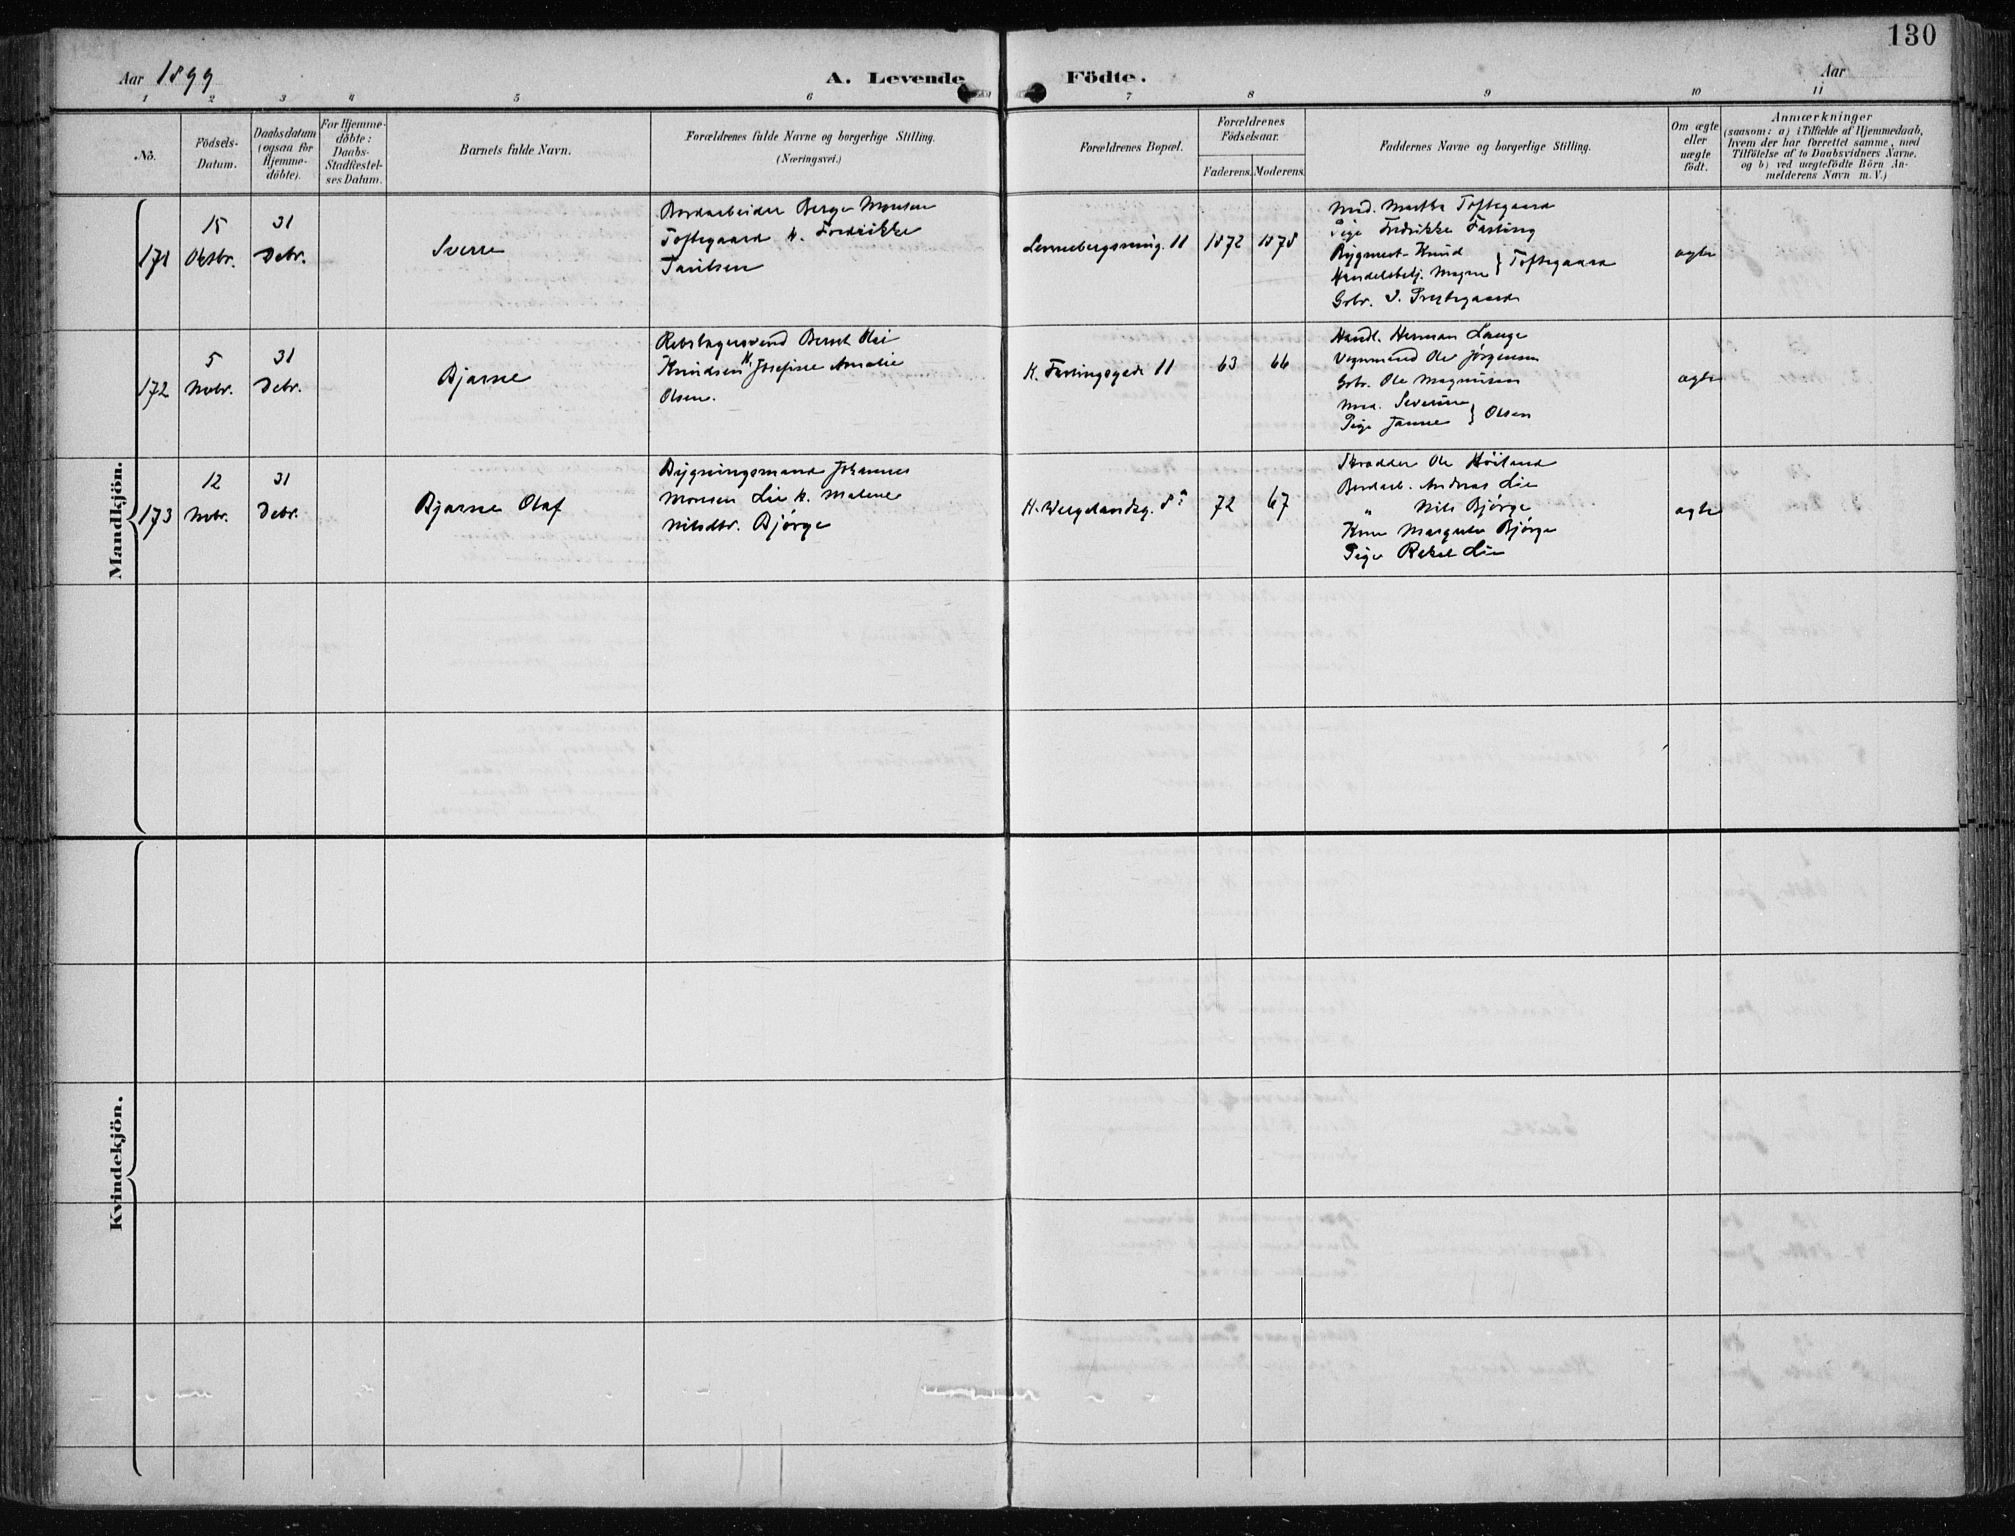 130
Aar 1899
A. Levende Födte.
Aar
1 2 3 4 5 6 7 8 9 10 11
No.
Födsels-
Datum.
Daabsdatum
(ogsaa for
Hjemme-
döbte).
For Hjemme-
döbte:
Daabs-
Stadfæstel-
ses Datum.
Barnets fulde Navn.
Forældrenes fulde Navne og borgerlige Stilling.
(Næringsvei.)
Forældrenes Bopæl.
Forældrenes
Födselsaar.
Faderens. Moderens.
Faddernes Navne og borgerlige Stilling.
Om ægte
eller
uægte
födt.
Anmærkninger
(saasom: a) i Tilfælde af Hjemmedaab,
hvem der har forrettet samme, med
Tilföielse af to Daabsvidners Navne,
og b) ved uægtefödte Börn An-
melderens Navn m. V.)
Mandkjön.
171
15
Oktbr.
31
Debr.
Sverre
Bordarbeider Berge Monsen
Toftegaard h. Fredrikke
Paulsen
11
1872
1878
Mad. Marthe Toftegaard
Pige Fredrikke Fasting
Bygmest. Knud
Handelsbetj. Magne } Toftegaard
Gbr. J. Prestegaard
ægte
172
5
Novbr.
31
Debr.
Bjarne
Rebslagersvend Bernt Olai
Knudsen h. Josefine Amalie
Olsen.
K. Fastingsgade 11
63
66
Handl. Herman Lange
Vognmand Ole Jørgensen
Gbr. Ole Magnussen
Mad. Severine
Pige Janna } Olsen
ægte
173
12
Novbr.
31
Debr.
Bjarne Olaf
Bygningsmand Johannes
Monsen Lie h. Malene
Nilsdtr. Bjørge
H. Wergelandsg. 8a
72
67
Skrædder Ole Höiland
Bordarb. Andreas Lie
" Nils Bjørge
Kone Margrete Bjørge
Pige Rakel Lie
ægte
Kvindekjön.